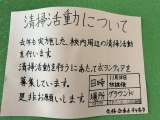 清掃活動について
去年も実施した、校内周辺の清掃活動
を行います。
清掃活動を行うにあたってボランティアを
募集しています。
是非お願いします。
日時
11月18日
放課後
場所
グラウンド